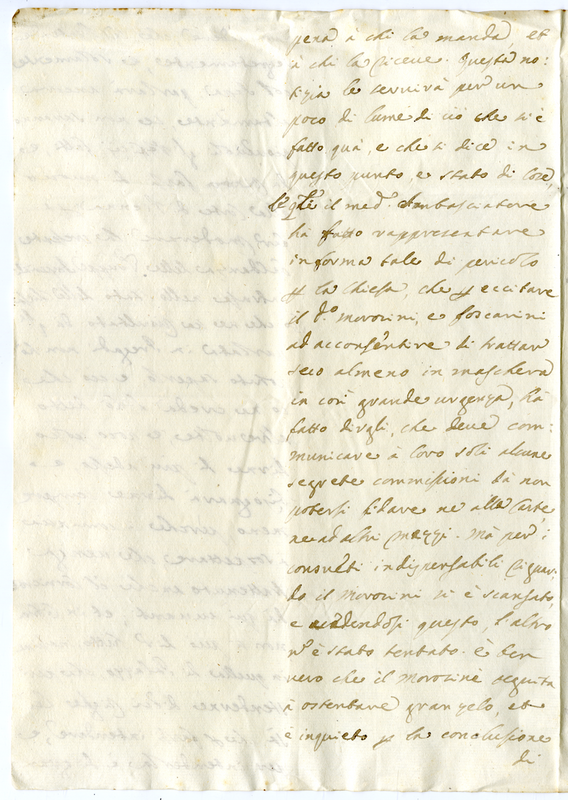 pena à chi la manda, et
à chi la riceve. Questa no:
tizia le servirà per un
poco di lume di ciò che si è
fatto quà, e che si dice in
questo punto, e stato di cose,
il med.º Ambasciatore
hà fatto rappresentare
in forma tale di pericolo
ꝑ la Chiesa, che ꝑ eccitare
il d.º Morosini, e Foscarini
ad acconsentire di trattar
seco almeno in maschera
in così grande urgenza, hà
fatto dirgli, che deve com:
municare à loro soli alcune
segrete commissioni dà non
potersi fidare ne alle Carte,
ne ad altri mezzi. Mà per i
consueti indispensabili riguar:
do il Morosini si è scansato,
e questo, l'altro
nº è stato tentato. È ben
vero che il Morosini seguita
à ostentare gran zelo, et
è inquieto ꝑ la conclusione
di